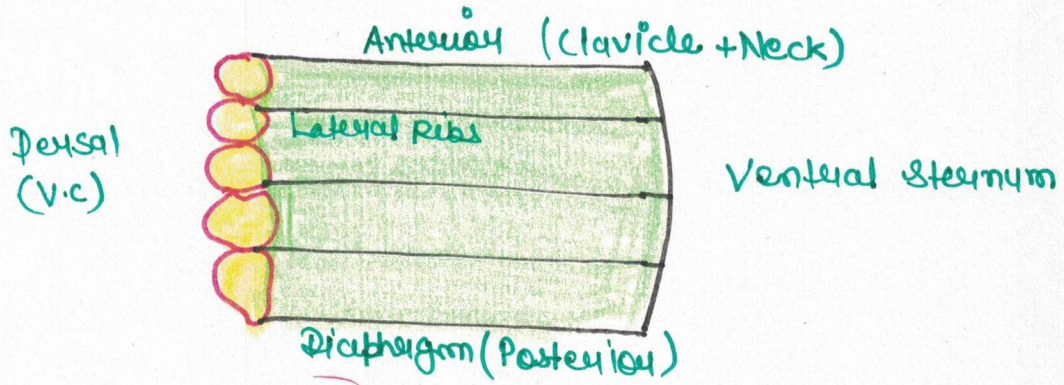 Anterior (Clavicle + Neck)
Dorsal
(V.C)
Lateral Ribs
Ventral Sternum
Diaphragm (Posterior)